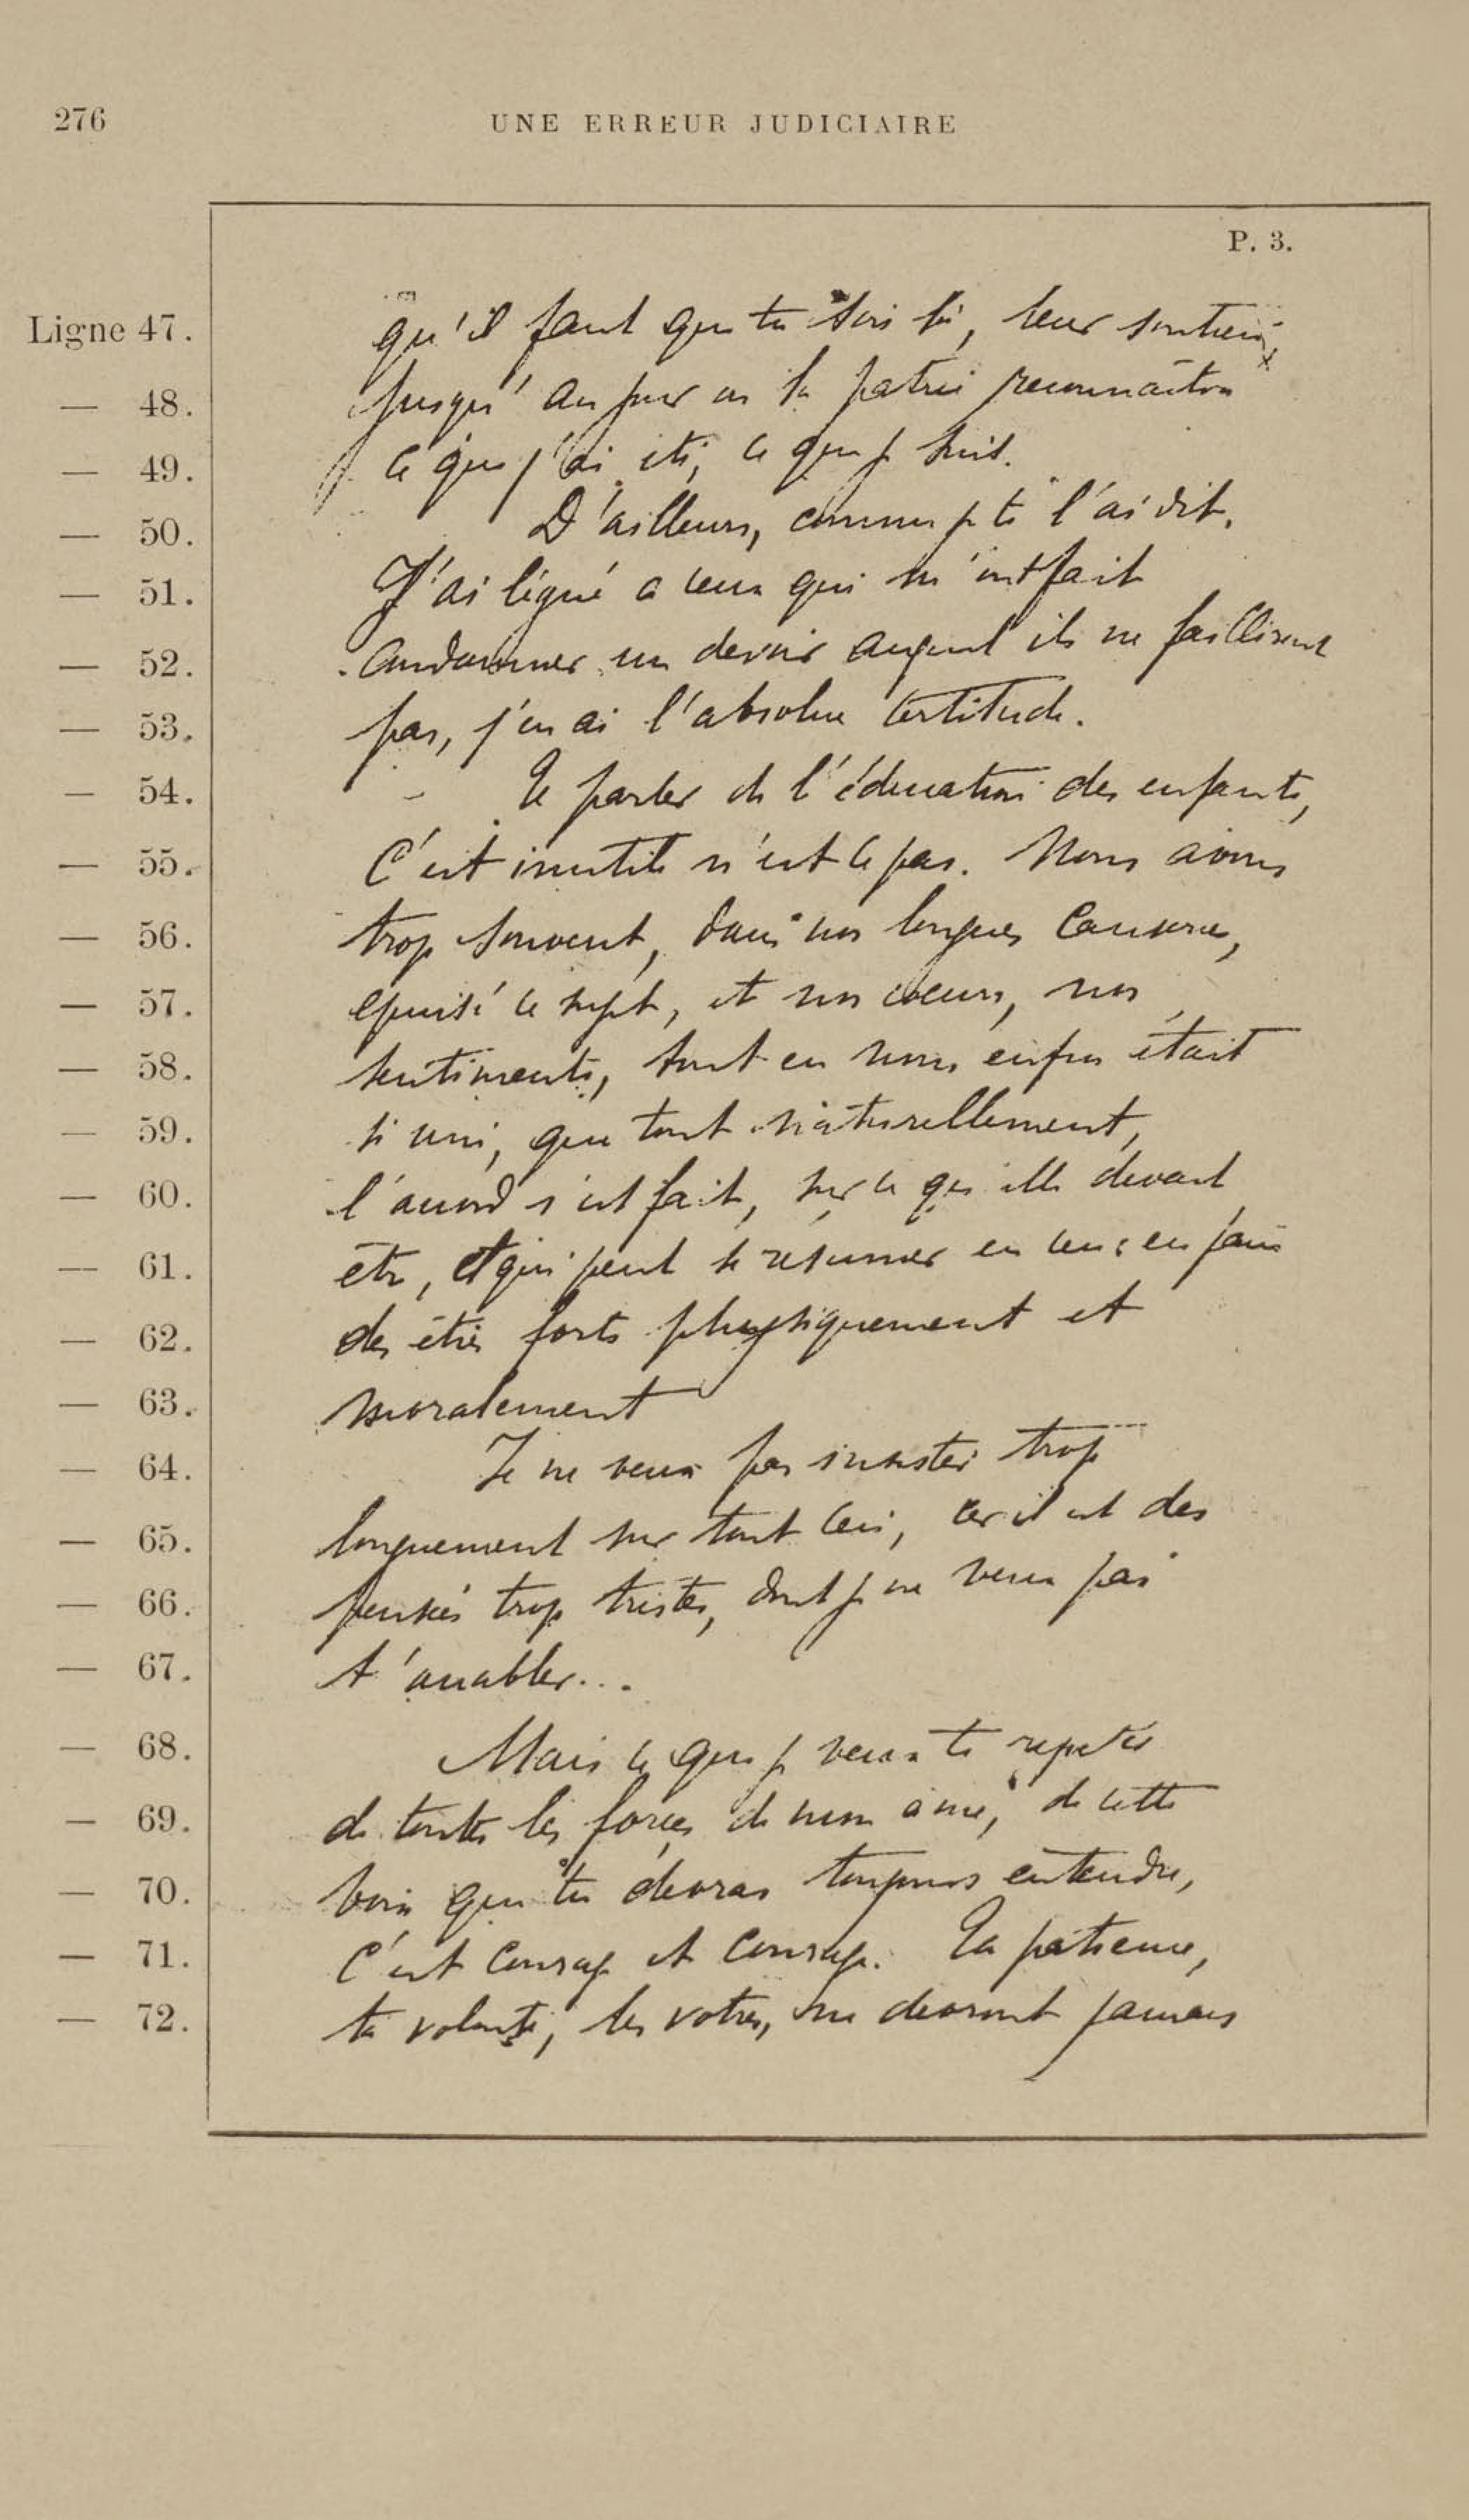 276
UNE ERREUR JUDICIAIRE
P. 3.
Ligne 47. qu'il faut que tu sois là, leur soutien,
— 48. jusqu'au jour où la patrie reconnaîtra
— 49. ce que j'ai été, ce que je suis.
— 50. D'ailleurs, comme je te l'ai dit,
— 51. J'ai légué à ceux qui m'ont fait
— 52. condamner un devoir auquel ils ne failliront
— 53. pas, j'en ai l'absolue certitude.
— 54. Te parler de l'éducation des enfants,
— 55. C'est inutile n'est ce pas. Nous avons
— 56. trop souvent, dans nos longues causeries,
— 57. épuisé ce sujet, et nos cœurs, nos
— 58. sentiments, tout en nous enfin était
— 59. si uni, que tout naturellement,
— 60. l'accord s'est fait, sur ce qu'elle devait
— 61. être, et qui peut se résumer en ceci: en faire
— 62. des êtres forts physiquement et
— 63. moralement
— 64. Je ne veux pas insister trop
— 65. longuement sur tout ceci, car il est des
— 66. pensées trop tristes, dont je ne veux pas
— 67. t'accabler...
— 68. Mais ce que je veux te repeter
— 69. de toutes les forces de mon âme, de cette
— 70. voix que tu devras toujours entendre,
— 71. C'est courage et courage. Ta patience,
— 72. ta volonté, les votres, ne devront jamais